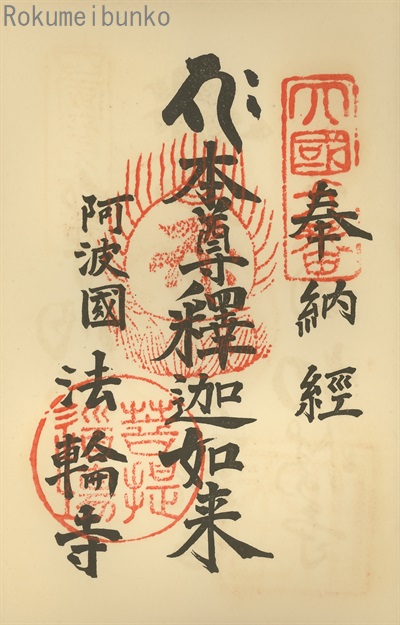 Rokumeibunko
奉納經
本尊釋迦如来
阿波國
法輪寺
菩提
道場